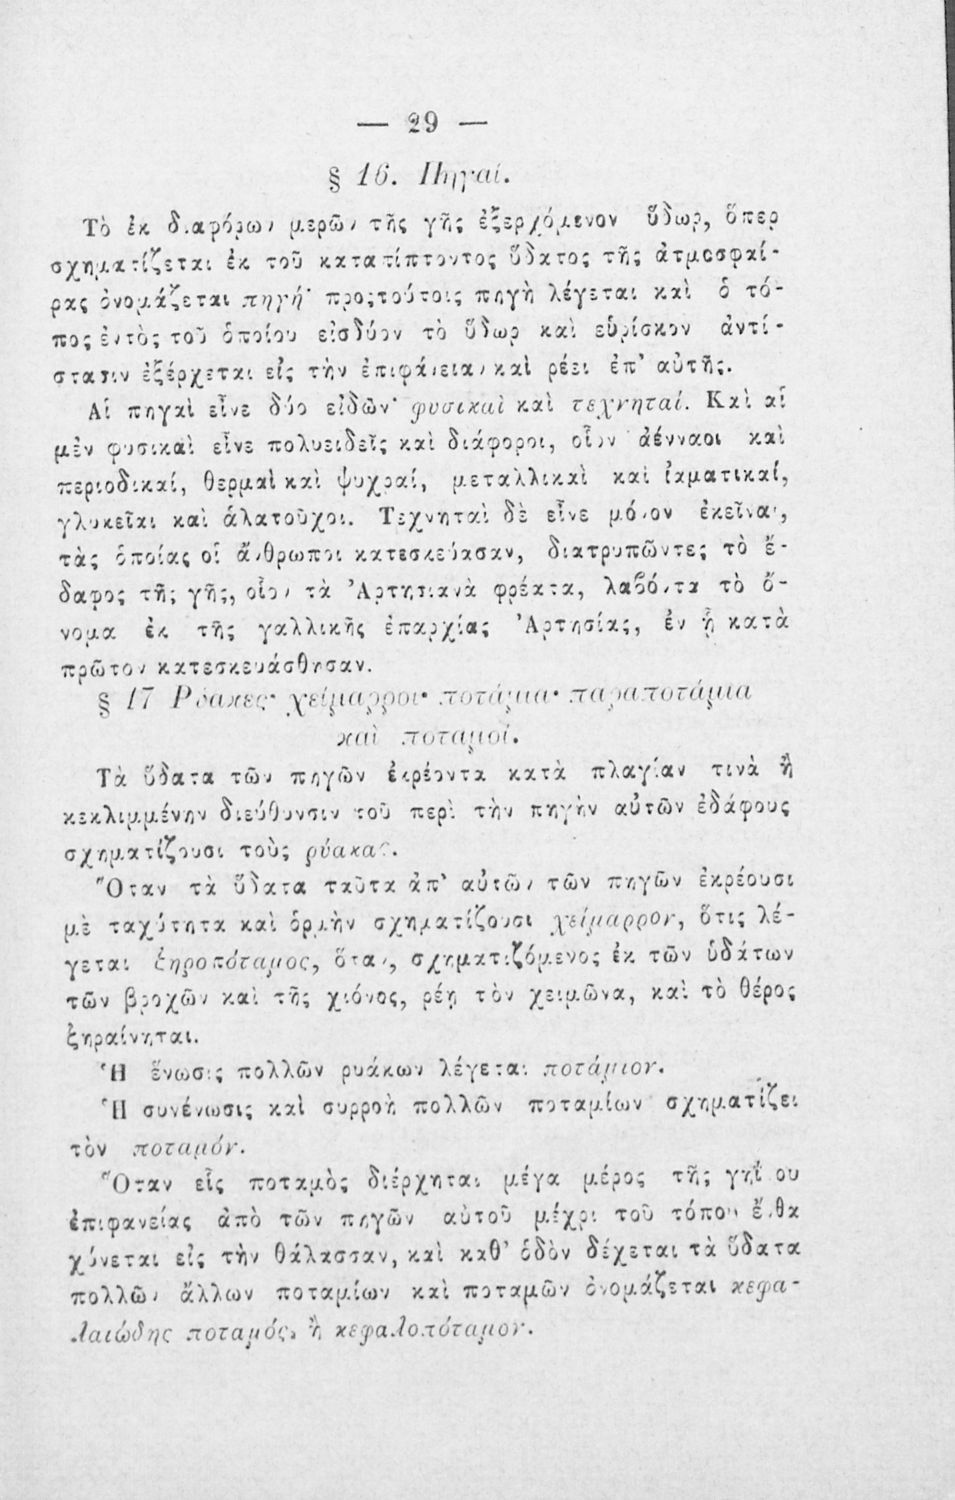 — 29 —
§ 16. Πηγαί.
Τὸ ἐκ διαφόρων μερῶν τῆς γῆς ἐξερχόμενον ὕδωρ, ὅπερ
σχηματίζεται ἐκ τοῦ καταπίπτοντος ὕδατος τῆς ἀτμοσφαί-
ρας ὀνομάζεται πηγή· προςτούτοις πηγὴ λέγεται καὶ ὁ τό-
πος ἐντὸς τοῦ ὁποίου εἰσδύον τὸ ὕδωρ καὶ εὑρίσκον ἀντί-
στασιν ἐξέρχεται εἰς τὴν ἐπιφάνειαν καὶ ρέει ἐπ' αὐτῆς.
Αἱ πηγαὶ εἶνε δύο εἰδῶν· φυσικαὶ καὶ τεχνηταί. Καὶ αἱ
μὲν φυσικαὶ εἶνε πολυειδεῖς καὶ διάφοροι, οἷον ἀένναοι καὶ
περιοδικαί, θερμαὶ καὶ ψυχραί, μεταλλικαὶ καὶ ἰαματικαί,
γλυκεῖαι καὶ ἁλατοῦχοι. Τεχνηταὶ δὲ εἶνε μόνον ἐκεῖναι,
τὰς ὁποίας οἱ ἄνθρωποι κατεσκεύασαν, διατρυπῶντες τὸ ἔ-
δαφος τῆς γῆς, οἷον τὰ Ἀρτησιανὰ φρέατα, λαβόντα τὸ ὄ-
νομα ἐκ τῆς γαλλικῆς ἐπαρχίας Ἀρτησίας, ἐν ᾗ κατὰ
πρῶτον κατεσκευάσθησαν.
§ 17 Ρύακες· χείμαρροι· ποτάμια· παραποτάμια
καὶ ποταμοί.
Τὰ ὕδατα τῶν πηγῶν ἐκρέοντα κατὰ πλαγίαν τινὰ ἢ
κεκλιμμένην διεύθυνσιν τοῦ περὶ τὴν πηγὴν αὐτῶν ἐδάφους
σχηματίζουσι τοὺς ρύακας.
Ὅταν τὰ ὕδατα ταῦτα ἀπ' αὐτῶν τῶν πηγῶν ἐκρέουσι
μὲ ταχύτητα καὶ ὁρμὴν σχηματίζουσι χείμαρρον, ὅτις λέ-
γεται ξηροπόταμος, ὅταν, σχηματιζόμενος ἐκ τῶν ὑδάτων
τῶν βροχῶν καὶ τῆς χιόνος, ρέῃ τὸν χειμῶνα, καὶ τὸ θέρος
ξηραίνηται.
Ἡ ἕνωσις πολλῶν ρυάκων λέγεται ποτάμιον.
Ἡ συνένωσις καὶ συρροὴ πολλῶν ποταμίων σχηματίζει
τὸν ποταμόν.
Ὅταν εἷς ποταμὸς διέρχηται μέγα μέρος τῆς γηΐνου
ἐπιφανείας ἀπὸ τῶν πηγῶν αὐτοῦ μέχρι τοῦ τόπου ἔνθα
χύνεται εἰς τὴν θάλασσαν, καὶ καθ' ὁδὸν δέχεται τὰ ὕδατα
πολλῶν ἄλλων ποταμίων καὶ ποταμῶν ὀνομάζεται κεφα-
λαιώδης ποταμός, ἢ κεφαλοπόταμον.